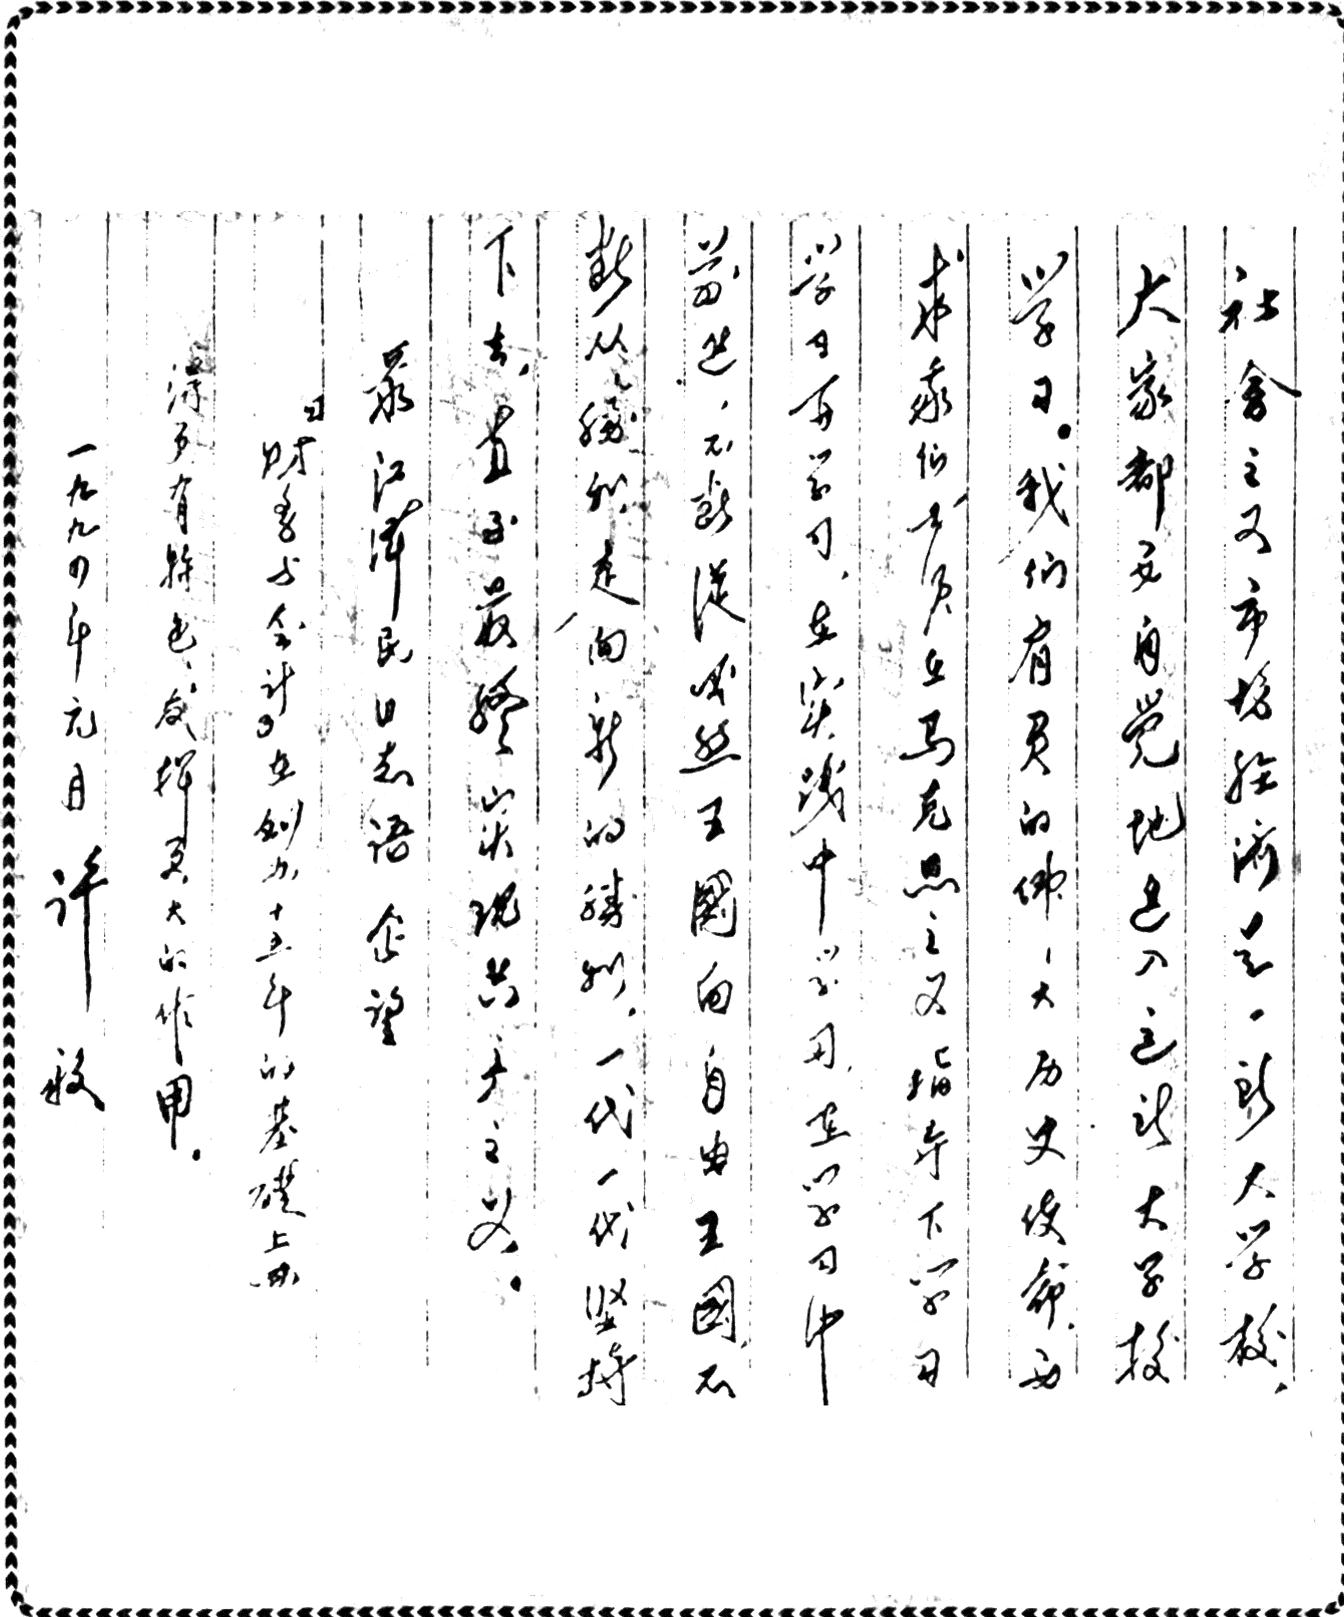 社会主义市场经济是一新大学校，
大家都要自觉地进入这新大学校
学习。我们有负的伟大历史使命，要
求我们要在马克思主义指导下学习
学习再学习，在实践中学用，在学习中
前进，不断从必然王國向自由王國，不
断从胜利走向新的勝利，一代一代坚持
下去，直至最终实现共产主义。
录江泽民同志语 企望
《财务与会计》在创办十五年的基礎上办
得更有特色，发挥更大的作用。
一九九四年元月 许毅